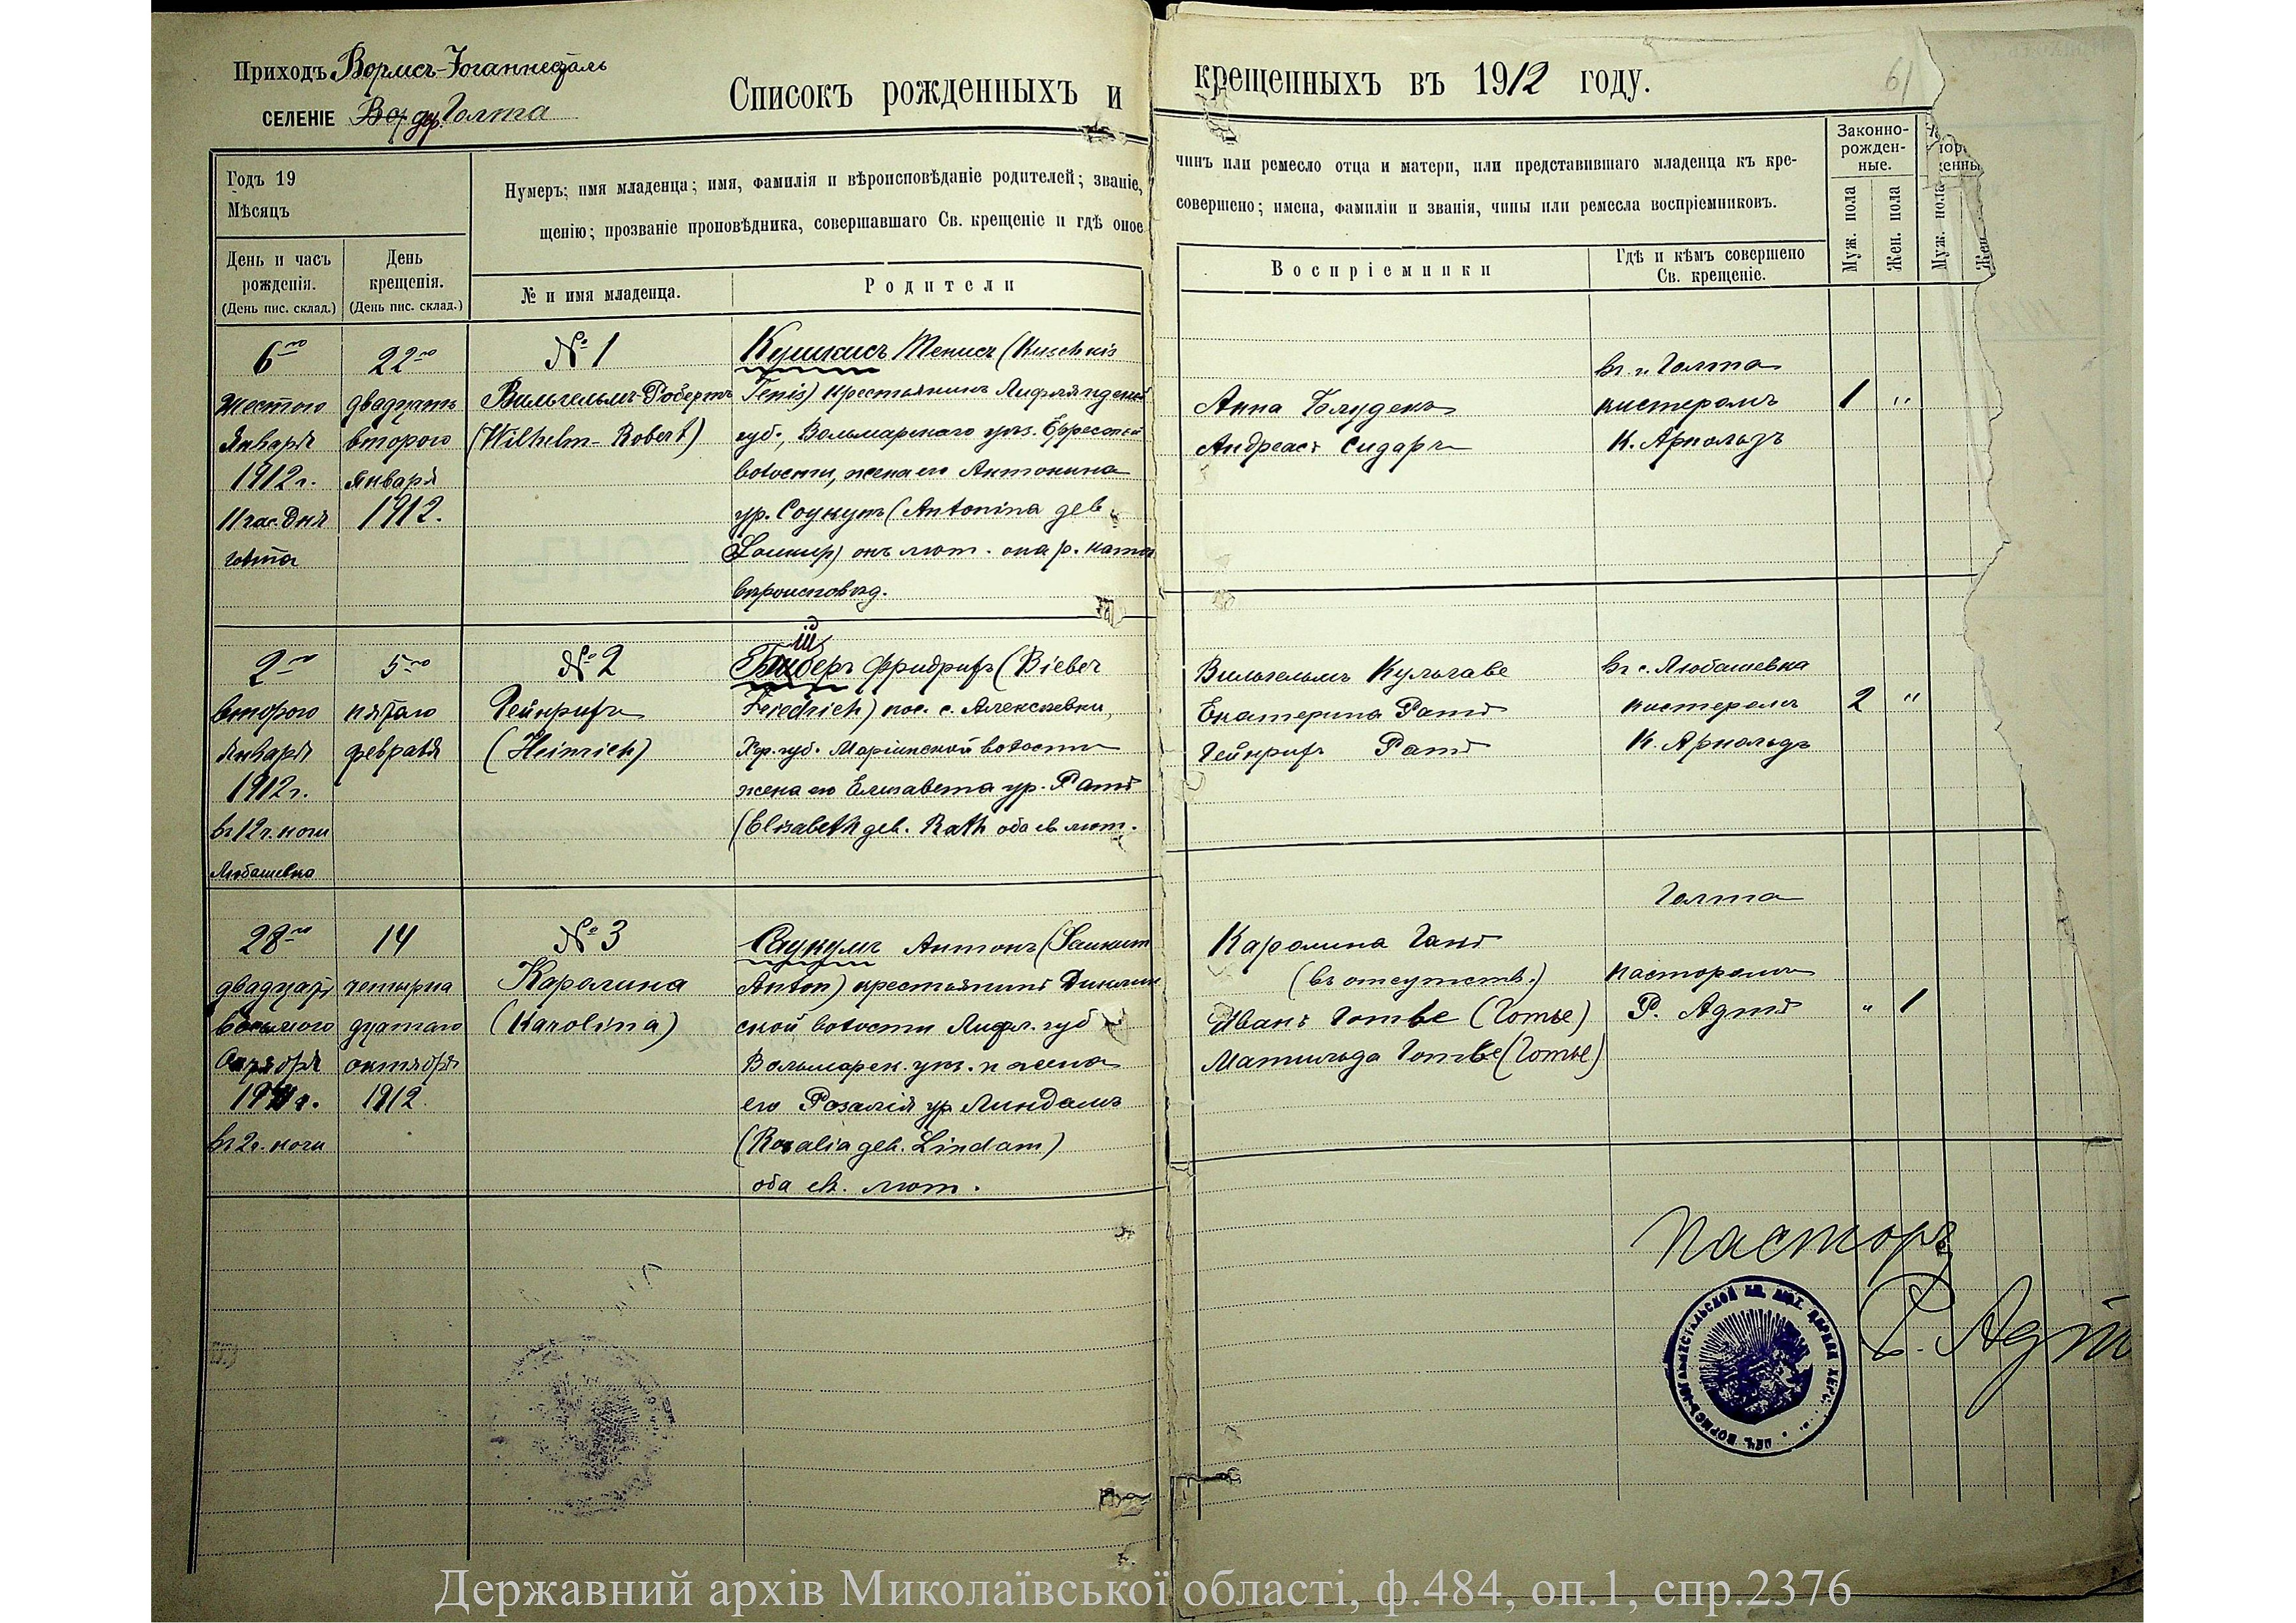 Приходъ Вормсъ-Іоганнесталь
СЕЛЕНІЕ др. Голта
Списокъ рожденныхъ и крещенныхъ въ 1912 году.
61
Годъ 19
Мѣсяцъ
Нумеръ; имя младенца; имя, фамилія и вѣроисповѣданіе родителей; званіе,
щенію; прозваніе проповѣдника, совершавшаго Св. крещеніе и гдѣ оное
чинъ или ремесло отца и матери, или представившаго младенца къ кре-
совершено; имена, фамиліи и званія, чины или ремесла воспріемниковъ.
Законно-
рожден-
ные.
Муж. пола
Жен. пола
Муж. пола
Жен.
День и часъ
рожденія.
(День пис. склад.)
День
крещенія.
(День пис. склад.)
№ и имя младенца.
Родители
Воспріемники
Гдѣ и кѣмъ совершено
Св. крещеніе.
6го
шестого
Января
1912 г.
11 час. дня
Голта
22го
двадцать
второго
января
1912.
№ 1
Вильгельмъ-Робертъ
(Wilhelm-Robert)
Кушкисъ Тенисъ (Kuschkis
Tenis) крестьянинъ Лифляндской
губ., Вольмарскаго уѣз.
волости, жена его Антонина
ур. (Antonina дев.
онъ лют. она р. катол
вѣроисповѣд.
Анна
Андреасъ Сидаръ
въ г. Голта
кистеромъ
К. Арнольдъ
1 "
2го
второго
января
1912 г.
въ 12 ч. ночи
Любашевка
5го
пятаго
февраля
№ 2
Гейнрихъ
(Heinrich)
Биберъ Фридрихъ (Bieber
Friedrich) пос. с. Алексѣевки,
Хер. губ. Маріинской волости
жена его Елизавета ур. Ратъ
(Elisabeth дев. Rath оба ев. лют.
Вильгельмъ Кульгаве
Екатерина Ратъ
Гейнрихъ Ратъ
въ с. Любашевка
кистеромъ
К. Арнольдъ
2 "
28го
двадцать
восьмого
1911 г.
въ 2 ч. ночи
14
четырна
дцатаго
октября
1912
№ 3
Каролина
(Karolina)
Саукумъ Антонъ (Saukum
Anton) крестьянинъ
ской волости Лифл. губ
Вольмарск. уѣз. и жена
его Розалія ур Линдамъ
(Rosalia дев. Lindam)
оба ев. лют.
Каролина Гансъ
(въ отсутств.)
Иванъ Готье (Готье)
Матильда Готье (Готье)
Голта
пасторомъ
Р. Адтъ
" 1
Пасторъ
Р. Адтъ
Державний архів Миколаївської області, ф.484, оп.1, спр.2376